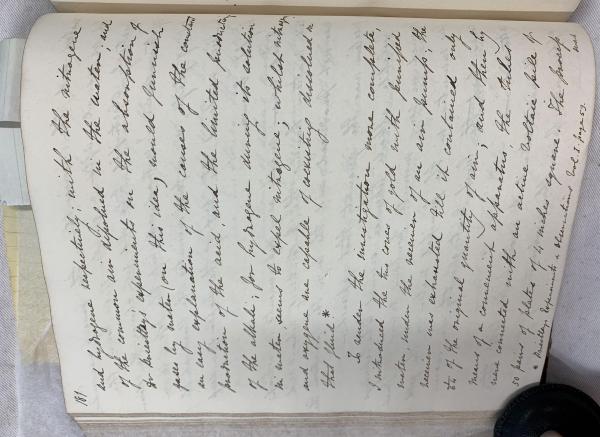 181
and hydrogene respectively with the nitrogene
of the common air dissolved in the water; and
Dr Priestley's experiments on the absorption of
gases by water (on this idea) would furnish
an easy explanation of the causes of the constant
production of the acid, and the limited production
of the alkali; for hydrogene during its solution
in water, seems to expel nitrogene; whilst nitrogene
and oxygene are capable of coexisting dissolved in
that fluid *
To render the investigation more complete,
I introduced the two cones of gold with purified
water under the receiver of an air pump; the
receiver was exhausted till it contained only
of the original quantity of air; and then by
means of a convenient apparatus, the tubes
were connected with an active Voltaic pile of
50 pairs of plates of 4 inches square. The process
was
* Priestley, Experiments & Observations Vol. 1. page 59.